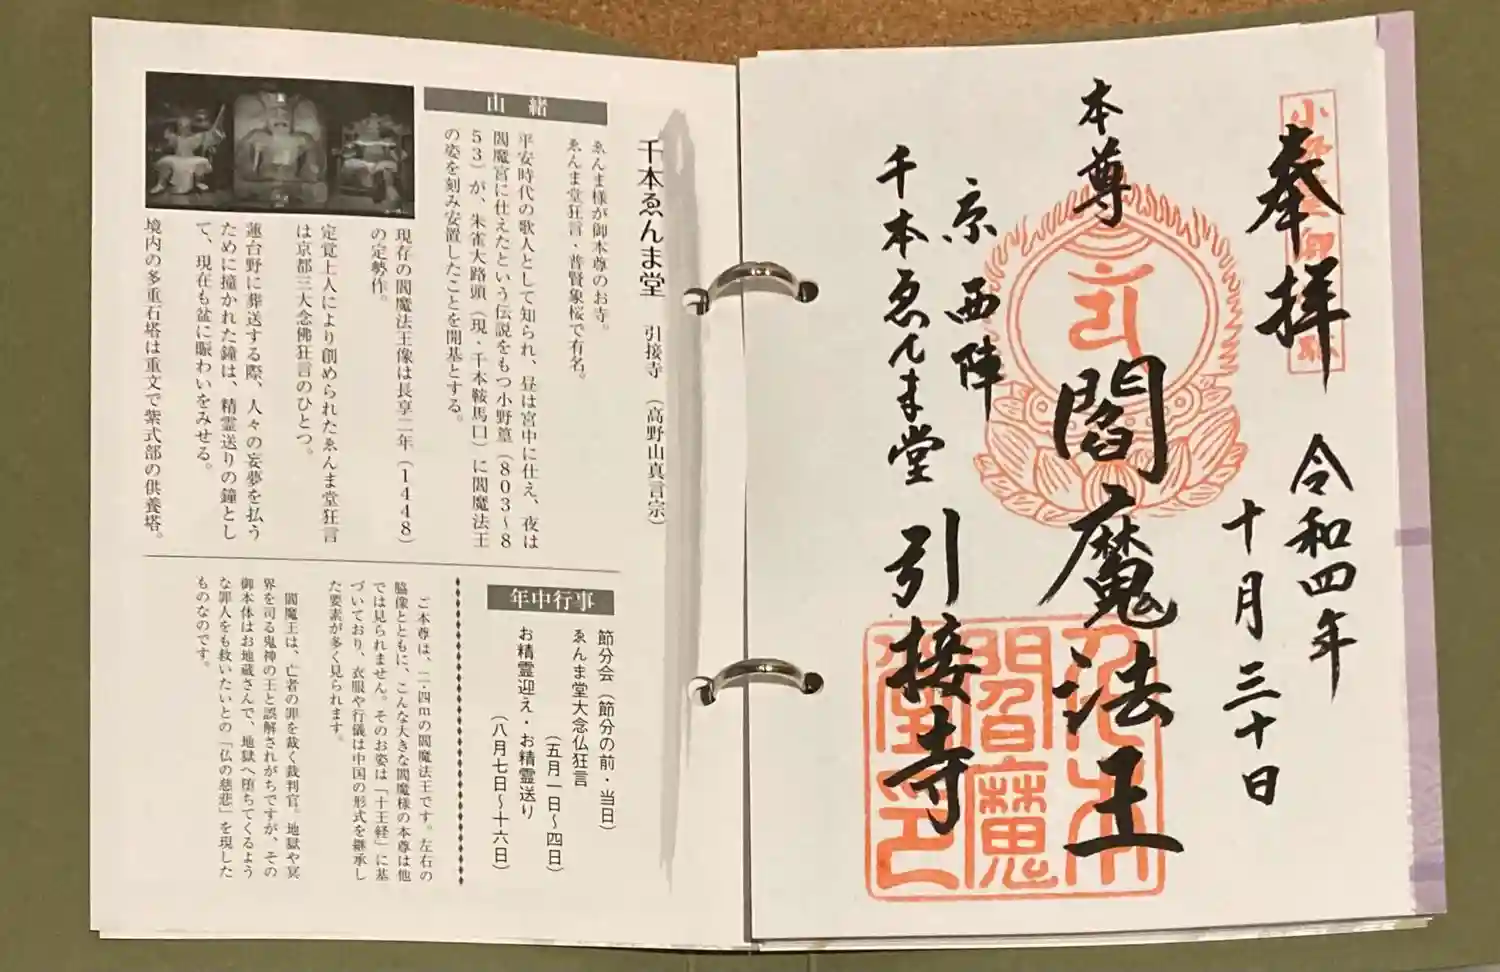 奉拝
令和四年
十月三十日
本尊
閻魔法王
京西陣
千本ゑんま堂
引接寺
千本ゑんま堂 引接寺 (高野山真言宗)
由緒
ゑんま様が御本尊のお寺。
ゑんま堂狂言・普賢象桜で有名。
平安時代の歌人として知られ、昼は宮中に仕え、夜は
閻魔宮に仕えたという伝説をもつ小野篁(803~8
53)が、朱雀大路頭(現・千本鞍馬口)に閻魔法王
の姿を刻み安置したことを開基とする。
現存の閻魔法王像は長享二年(1448)
の定勢作。
定覚上人により創められたゑんま堂狂言
は京都三大念佛狂言のひとつ。
蓮台野に葬送する際、人々の妄夢を払う
ために撞かれた鐘は、精霊送りの鐘とし
て、現在も盆に賑わいをみせる。
境内の多重石塔は重文で紫式部の供養塔。
年中行事
節分会(節分の前・当日)
ゑんま堂大念仏狂言
(五月一日~四日)
お精霊迎え・お精霊送り
(八月七日~十六日)
ご本尊は、二・四mの閻魔法王です。左右の
脇像とともに、こんな大きな閻魔様の本尊は他
では見られません。そのお姿は「十王経」に基
づいており、衣服や行儀は中国の形式を継承し
た要素が多く見られます。
閻魔王は、亡者の罪を裁く裁判官。地獄や冥
界を司る鬼神の王と誤解されがちですが、その
御本体はお地蔵さんで、地獄へ堕ちてくるよう
な罪人をも救いたいとの「仏の慈悲」を現した
ものなのです。